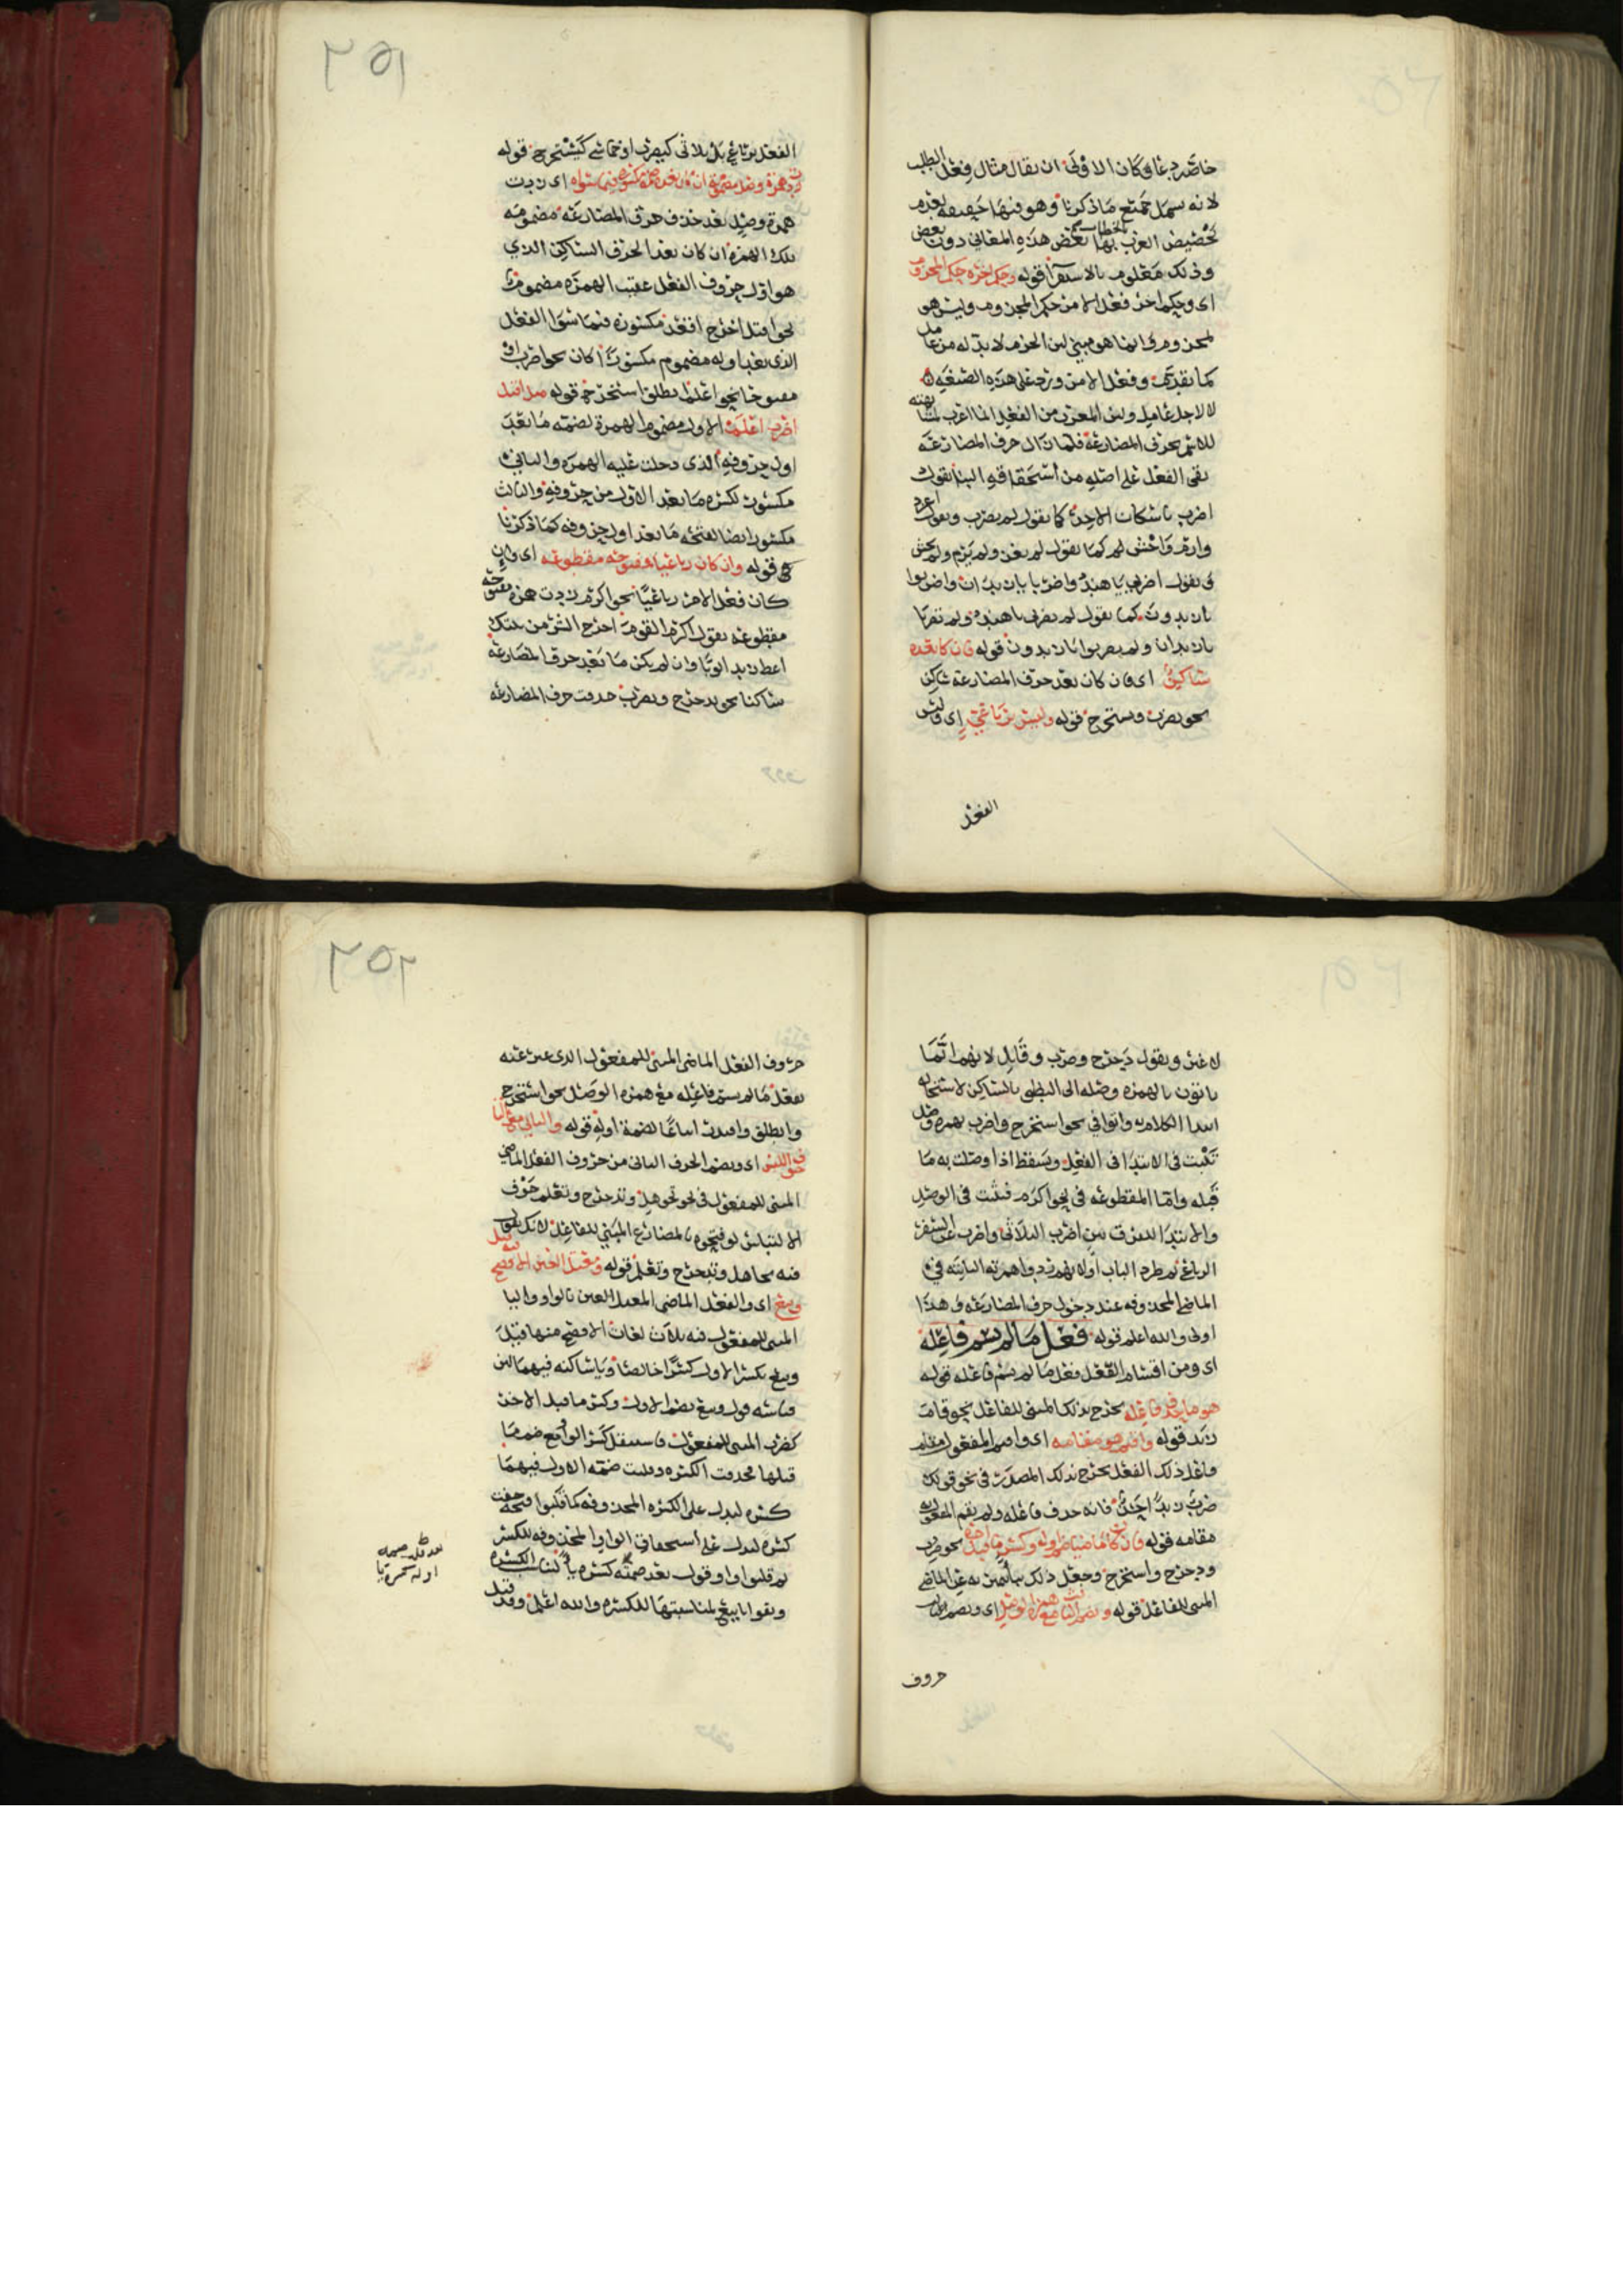 خاضر دعا وكان الاولى ان يقال مثال فعل الطلب
لانه يسمل جميع ما ذكرنا وهو فيها حقيقه لعدم
تخصيص العرب بها بعض هذه المعاني دون بعض
وذلك معلوم بالاستقرا قوله وحكم اخره حكم المجزوم
اي وحكم اخر فعل الامر حكم المجزوم وليس هو
بمجزوم وانما هو مبني لان الجزم لا بد له من عامل
كما تقدم وفعل الامر ورد على هذه الصيغه
لا لاجل عامل ولان المعرب من الفعل انما اعرب لمشابهته
للاسم بحرف المضارعة فلما زال حرف المضارعة
بقى الفعل على اصله من استحقاقه البنا تقول
اضرب باسكان الاخر كما تقول لم يضرب وتقول اغز
وارم واخش كما تقول لم يغز ولم يرم ولم يخش
وتقول اضربي يا هند واضربا يا زيدان واضربوا
يا زيدون كما تقول لم تضربي يا هند ولم تضربا
يا زيدان ولم تضربوا يا زيدون قوله فان كان بعده
ساكن اي فان كان بعد حرف المضارعة ساكن
نحو يضرب ويستخرج قوله وليس برباعي اي وليس
الفعل
٢٥١
الفعل برباعي بل ثلاثى كيضرب او خماسي كيستخرج قوله
زدت همزة وصل مضمومة ان كان بعده ضمة مكسورة فيما سواه اي زدت
همزة وصل بعد حذف حرف المضارعة مضمومه
تلك الهمزة ان كان بعد الحرف الساكن الذي
هو اول حروف الفعل عقيب الهمزة مضموما
نحو اقتل اخرج اقعد مكسورة فيما سوا الفعل
الذي بعد اوله مضموم مكسورا كان نحو اضرب او
مفتوحا نحو اعلم انطلق استخرج قوله مثل اقتل
اضرب اعلم الاول مضموم الهمزة لضمة ما بعد
اول حروفه الذي دخلت عليه الهمزه والثاني
مكسور لكسره ما بعد الاول من حروفه والثالث
مكسور ايضا لفتحه ما بعد اول حروفه كما ذكرنا
قوله وان كان رباعيا فمفتوحه مقطوعه اي وان
كان فعل الامر رباعيا نحو اكرم زيدت همزه مفتوحة
مقطوعه تقول اكرم القوم اخرج الشر من بيتك
اعط زيدا ثوبا وان لم يكن ما بعد حرف المضارعة
ساكنا نحو يدحرج ويضرب حذفت حرف المضارعه
لا غير وتقول دحرج وضرب وقابل لانهم انما
ياتون بالهمزه وصله الى النطق بالساكن لاستحاله
ابتدا الكلام به واتوا في نحو استخرج واضرب بهمزه وصل
تثبت في الابتدا في الفعل ويسقط اذا وصلت به ما
قبله واما المقطوعه في نحو اكرم فتثبت في الوصل
والابتدا للفرق بين اضرب الثلاثى واضرب عن السفر
الرباعي ثم طرد الباب او لانهم ردوا همزته الثابته في
الماضي المحذوفه عند دخول حرف المضارعه وهذا
اولى والله اعلم قوله فعل ما لم يسم فاعله
اي ومن اقسام الفعل فعل ما لم يسم فاعله قوله
هو ما حذف فاعله يخرج بذلك المبنى للفاعل نحو قام
زيد قوله واقيم هو مقامه اي واقيم المفعول مقام
فاعل ذلك الفعل يخرج بذلك المصدر في نحو قولك
ضرب زيدا احد فانه حذف فاعله ولم يقم المفعول به
مقامه قوله فان كان ماضيا ضم اوله وكسر ما قبل اخره نحو ضرب
ودحرج واستخرج وجعل ذلك ليتميز به عن الماضي
المبنى للفاعل قوله ويضم الثالث مع همزة الوصل اي ويضم ثالث
حروف
٢٥٢
حروف الفعل الماضى المبنى للمفعول الذى عبر عنه
بفعل ما لم يسم فاعله مع همزه الوصل نحو استخرج
وانطلق واقتدر اتباعا لضمة اوله قوله والثاني مع التا
خوف اللبس اي ويضم الحرف الثاني من حروف الفعل الماضي
المبنى للمفعول في نحو تجوهل وتدحرج وتعلم خوف
الالتباس لو فتحوه بالمضارع المبني للفاعل لانك تقول
فيه تجاهل وتدحرج وتعلم قوله ومعتل العين الافصح قيل
وبيع اي والفعل الماضي المعتل العين بالواو واليا
المبنى للمفعول فيه ثلاث لغات الافصح منها قيل
وبيع بكسر الاول كسرا خالصا ويا ساكنه فيهما لان
قياسه قول وبيع بضم الاول وكسر ما قبل الاخر
كضرب المبنى للمفعول فاستثقل كسر الواقع ضم ما
قبلها فحذفت الكسره وقلبت ضمة الاول فيهما
كسره ليدل على الكسره المحذوفه كما قلبوا فتحة خفت
كسره لتدل على استحقاق الواو المحذوفه للكسر
ثم قلبوا واو قول بعد ضمته كسره يا لتناسب الكسره
وبقوا يا بيع لمناسبتها للكسره والله اعلم وقد قيل
بعد قلب ضمه
اوله كسره يا